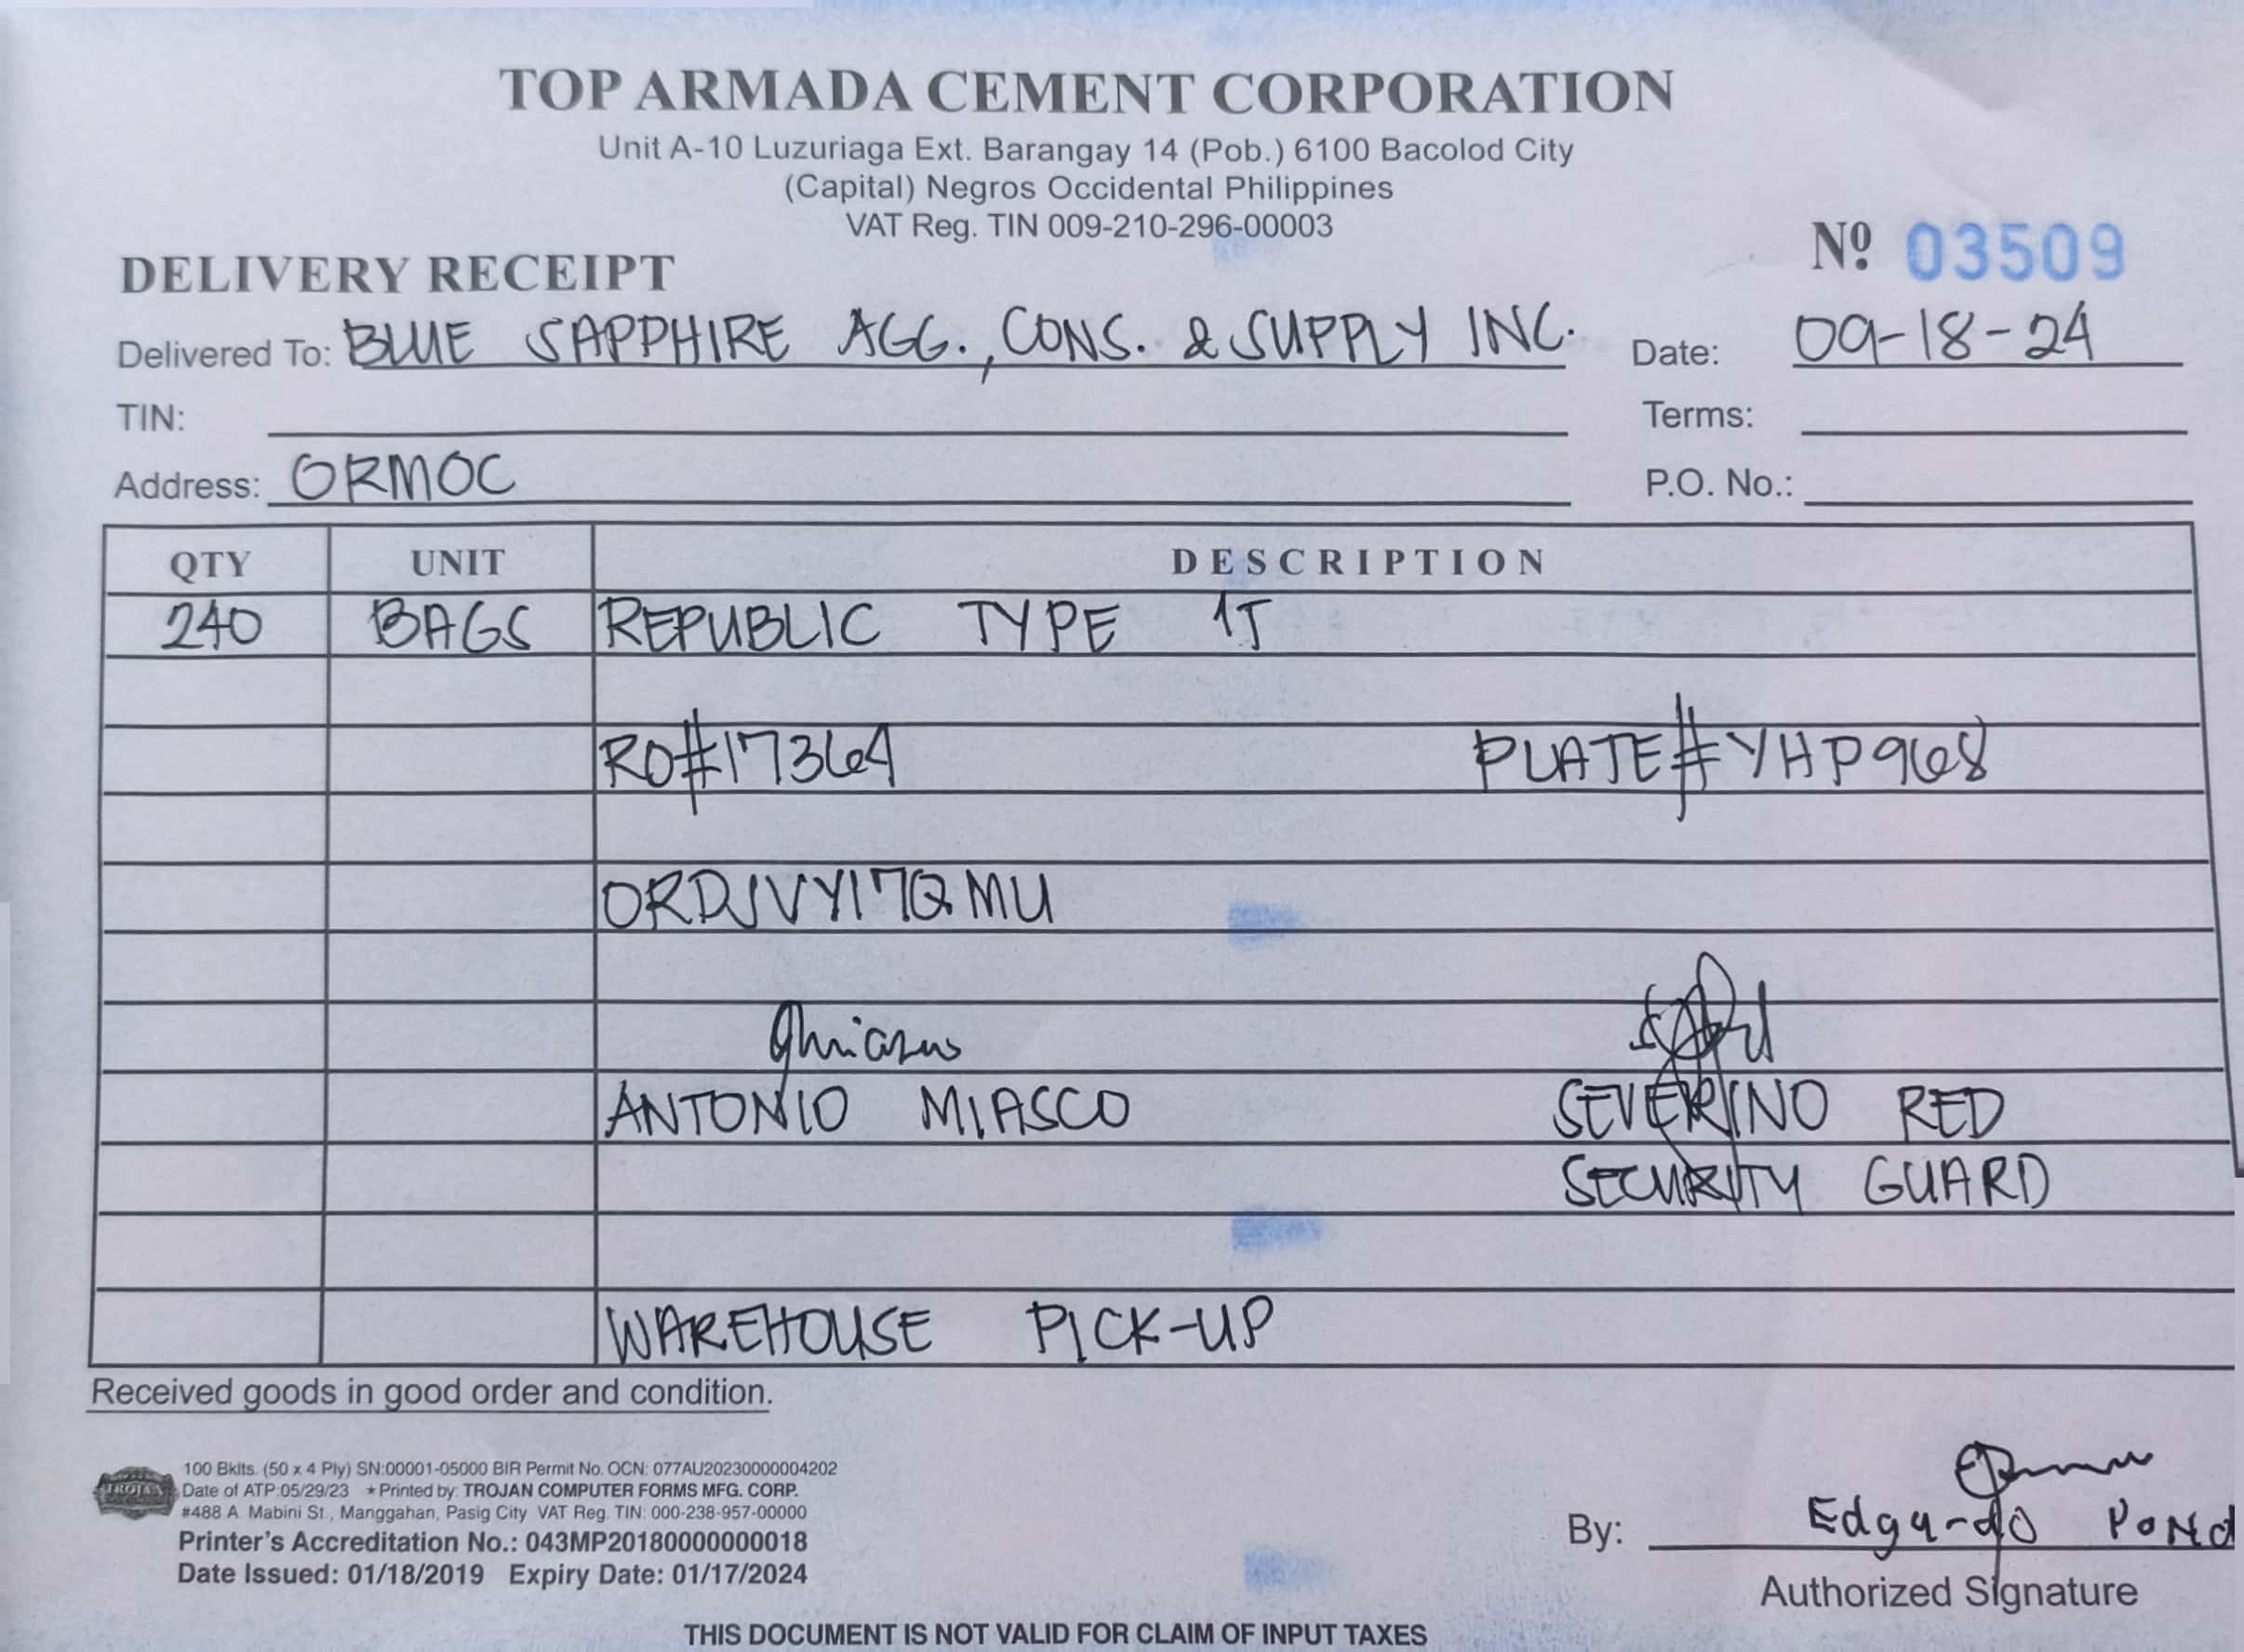 TOP ARMADA CEMENT CORPORATION
Unit A-10 Luzuriaga Ext. Barangay 14 (Pob.) 6100 Bacolod City
(Capital) Negros Occidental Philippines
VAT Reg. TIN 009-210-296-00003
Nº 03509
DELIVERY RECEIPT
Delivered To: BLUE SAPPHIRE AGG., CONS. & SUPPLY INC. Date: 09-18-24
TIN: Terms:
Address: ORMOC P.O. No.:
QTY UNIT DESCRIPTION
240 BAGS REPUBLIC TYPE 1T
RO#17364 PLATE#YHP968
ORDJVY17QMU
ANTONIO MIASCO SEVERINO RED
SECURITY GUARD
WAREHOUSE PICK-UP
Received goods in good order and condition.
TROJAN
100 Bklts. (50 x 4 Ply) SN:00001-05000 BIR Permit No. OCN: 077AU20230000004202
Date of ATP:05/29/23 ★Printed by: TROJAN COMPUTER FORMS MFG. CORP.
#488 A. Mabini St., Manggahan, Pasig City VAT Reg. TIN: 000-238-957-00000
Printer's Accreditation No.: 043MP20180000000018
Date Issued: 01/18/2019 Expiry Date: 01/17/2024
By: Edgardo
Authorized Signature
THIS DOCUMENT IS NOT VALID FOR CLAIM OF INPUT TAXES